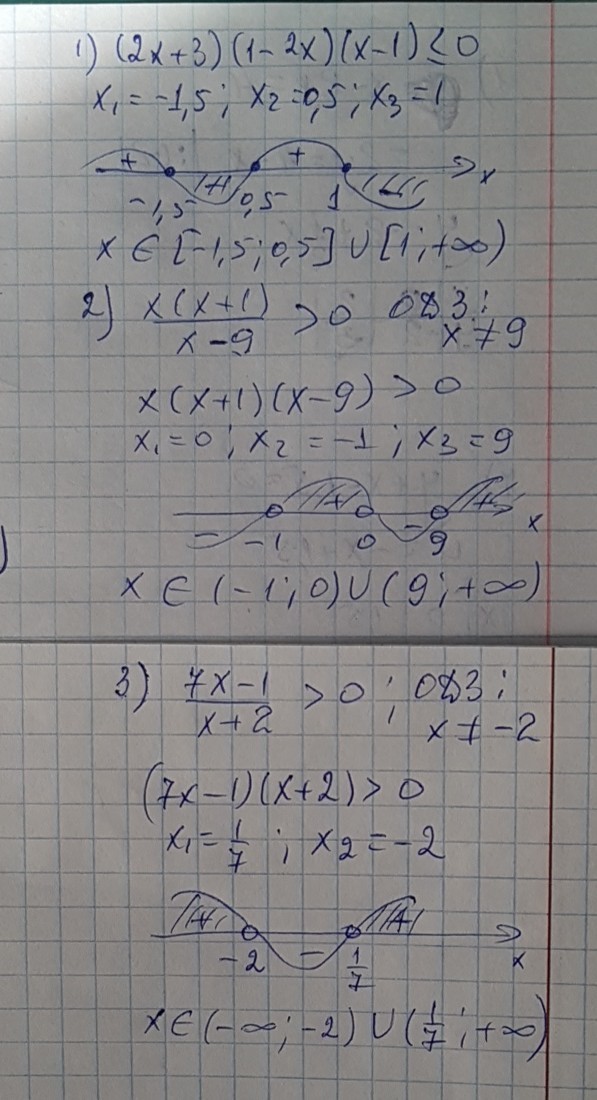 1) (2x+3)(1-2x)(x-1)≤0
x₁=-1,5; x₂=0,5; x₃=1
+ + x
-1,5 0,5 1
x∈[-1,5;0,5]∪[1;+∞)
2) x(x+1)/x-9 >0 ОДЗ:
x≠9
x(x+1)(x-9)>0
x₁=0; x₂=-1; x₃=9
- + - + x
-1 0 9
x∈(-1;0)∪(9;+∞)
3) 7x-1/x+2 >0; ОДЗ:
x≠-2
(7x-1)(x+2)>0
x₁=1/7; x₂=-2
+ - + x
-2 1/7
x∈(-∞;-2)∪(1/7;+∞)